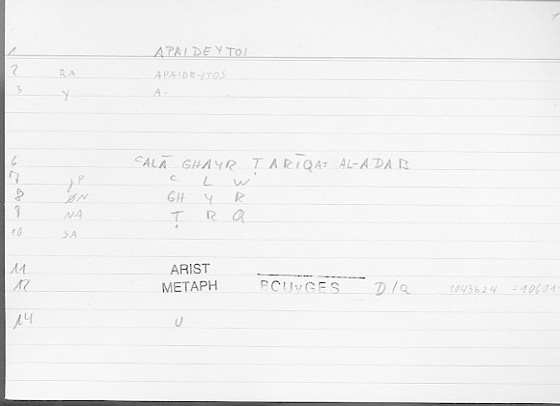 1
1 APAIDEYTOI
2 RA APAIDEYTOS
3 Y A-
6 ʿALĀ GHAYR ṬARĪQAT AL-ADAB
7 jP ʿ L W
8 ØN GH Y R
9 NA Ṭ R Q
10 SA
11 ARIST
12 METAPH BCUVGES D/Q 1043b24
14 U